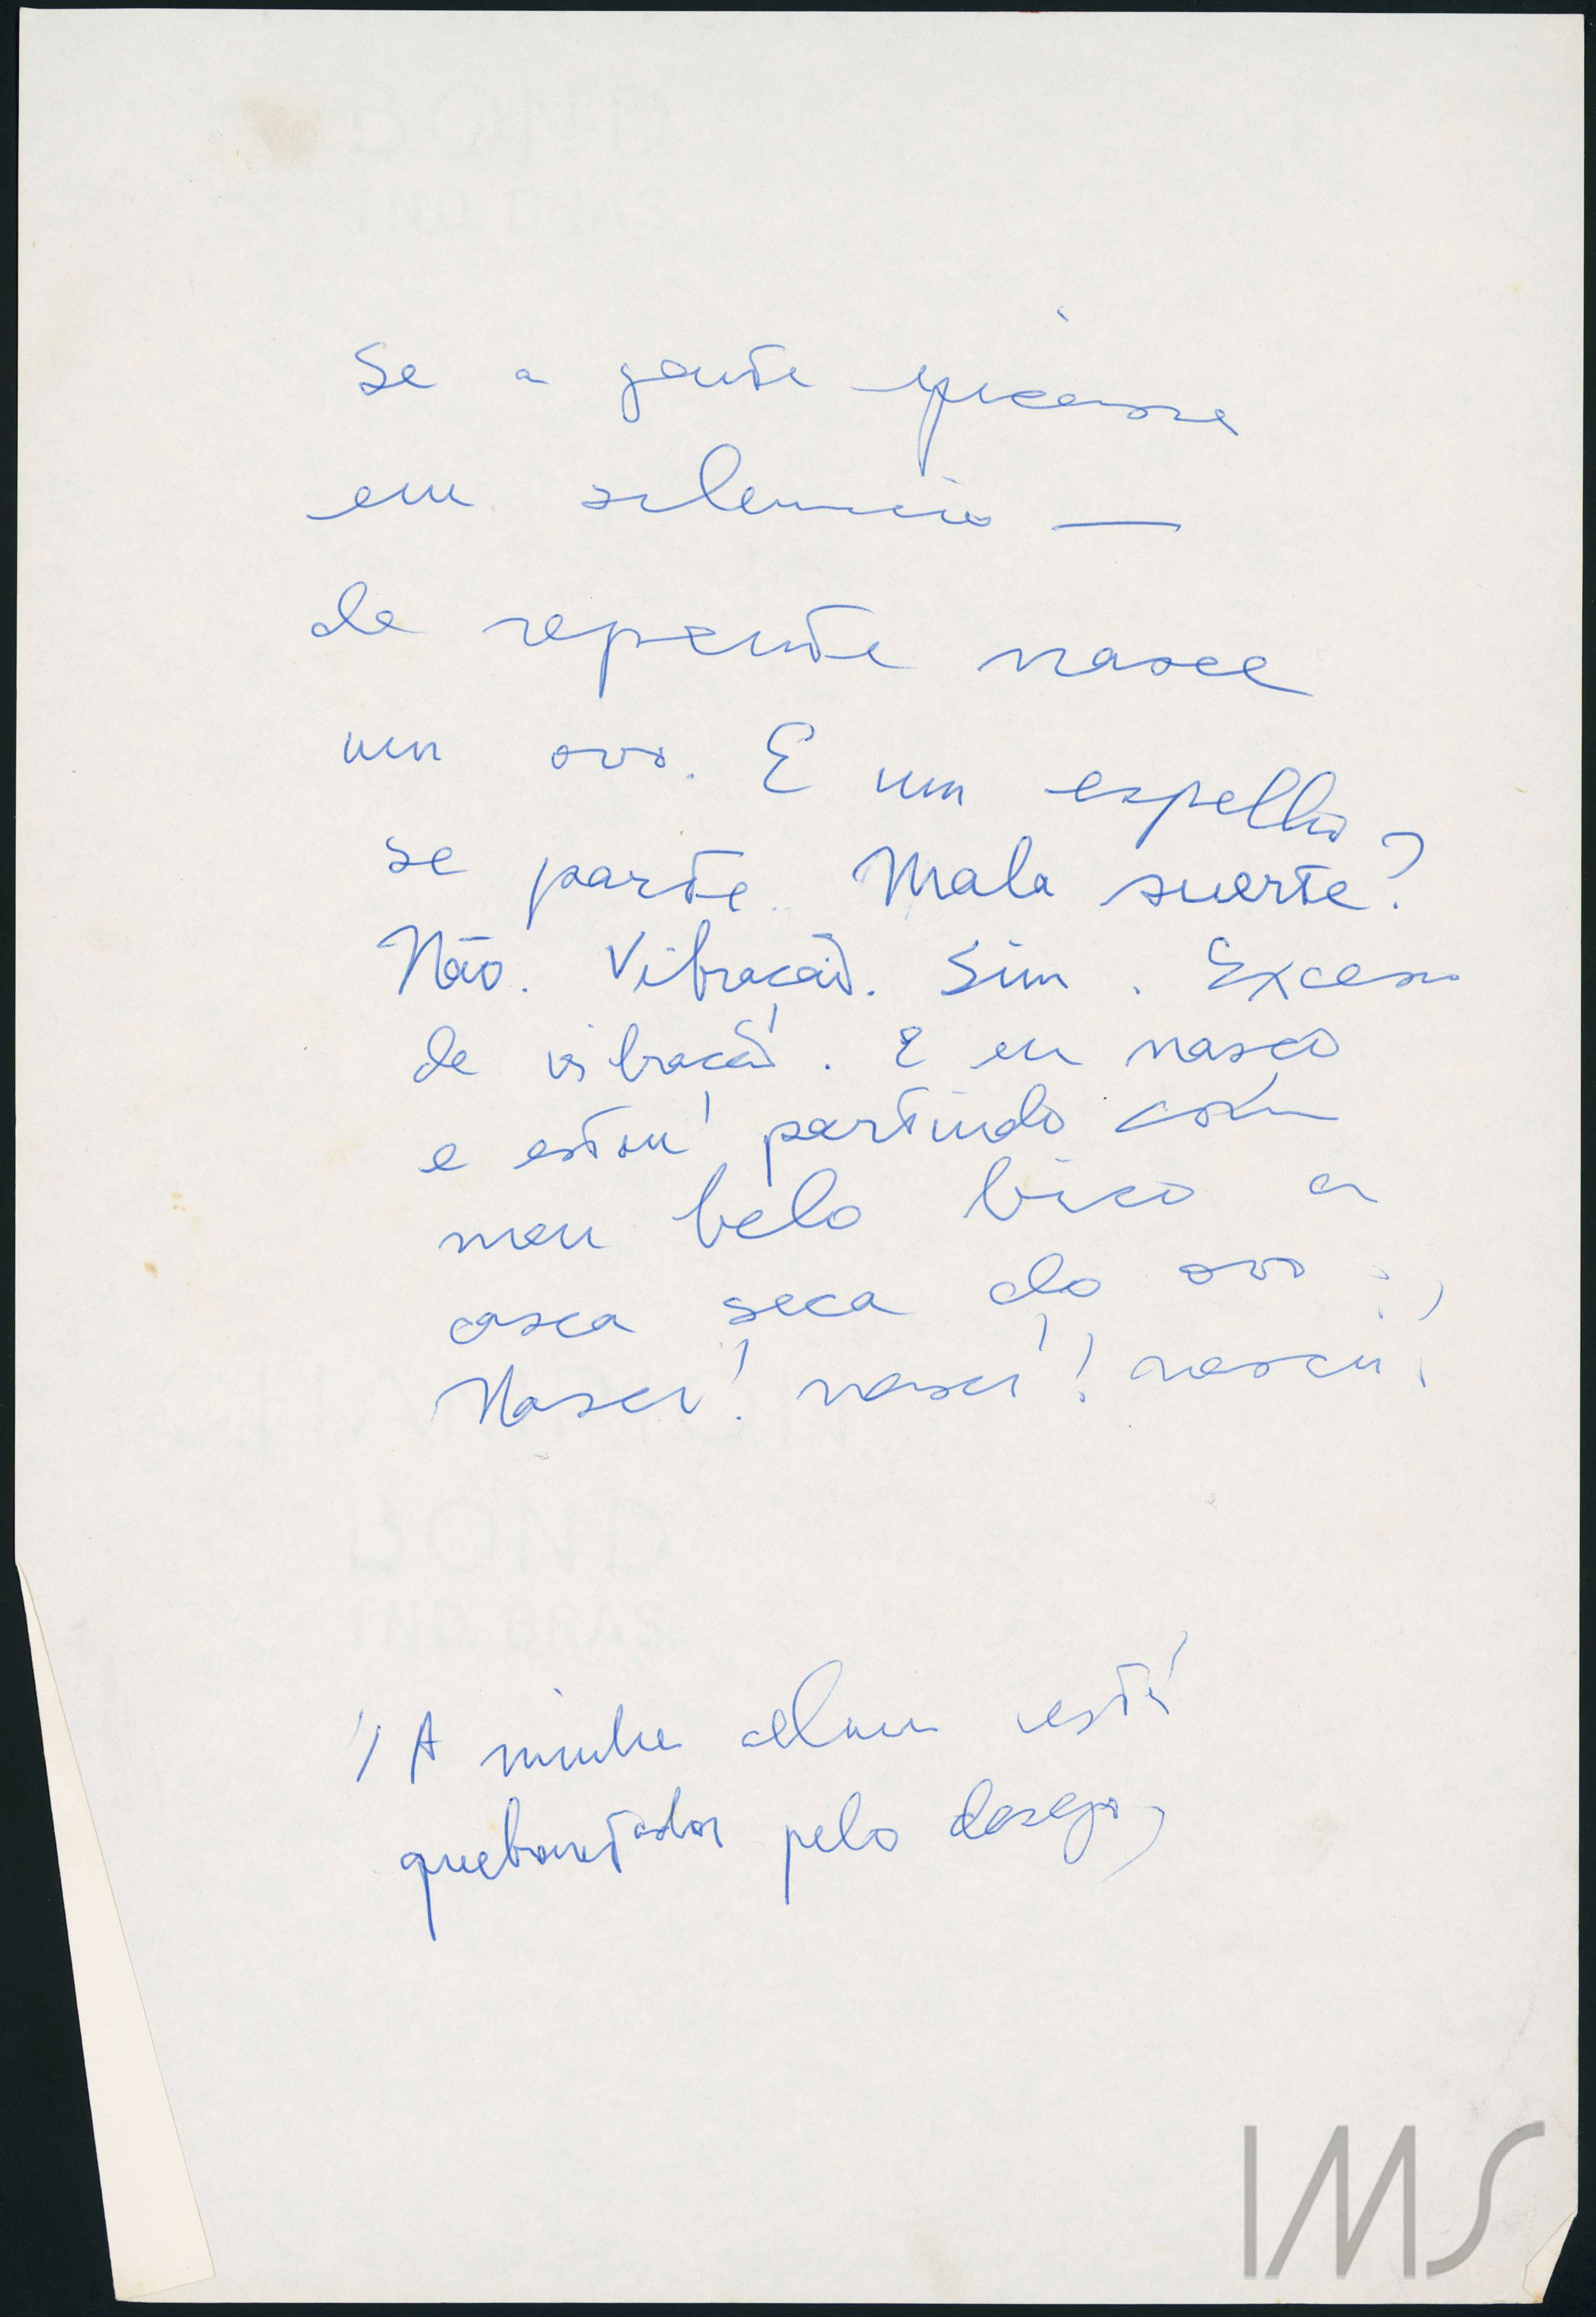 Se a gente ficasse
em silencio —
de repente nasce
um ovo. E um espelho
se parte. Mala suerte?
Não. Vibração. Sim. Excesso
de vibração. E eu nasço
e estou partindo com
meu belo bico a
casca seca do ovo.
Nasci! nasci! nasci!
A minha alma está
quebrantada pelo desejo
IMS